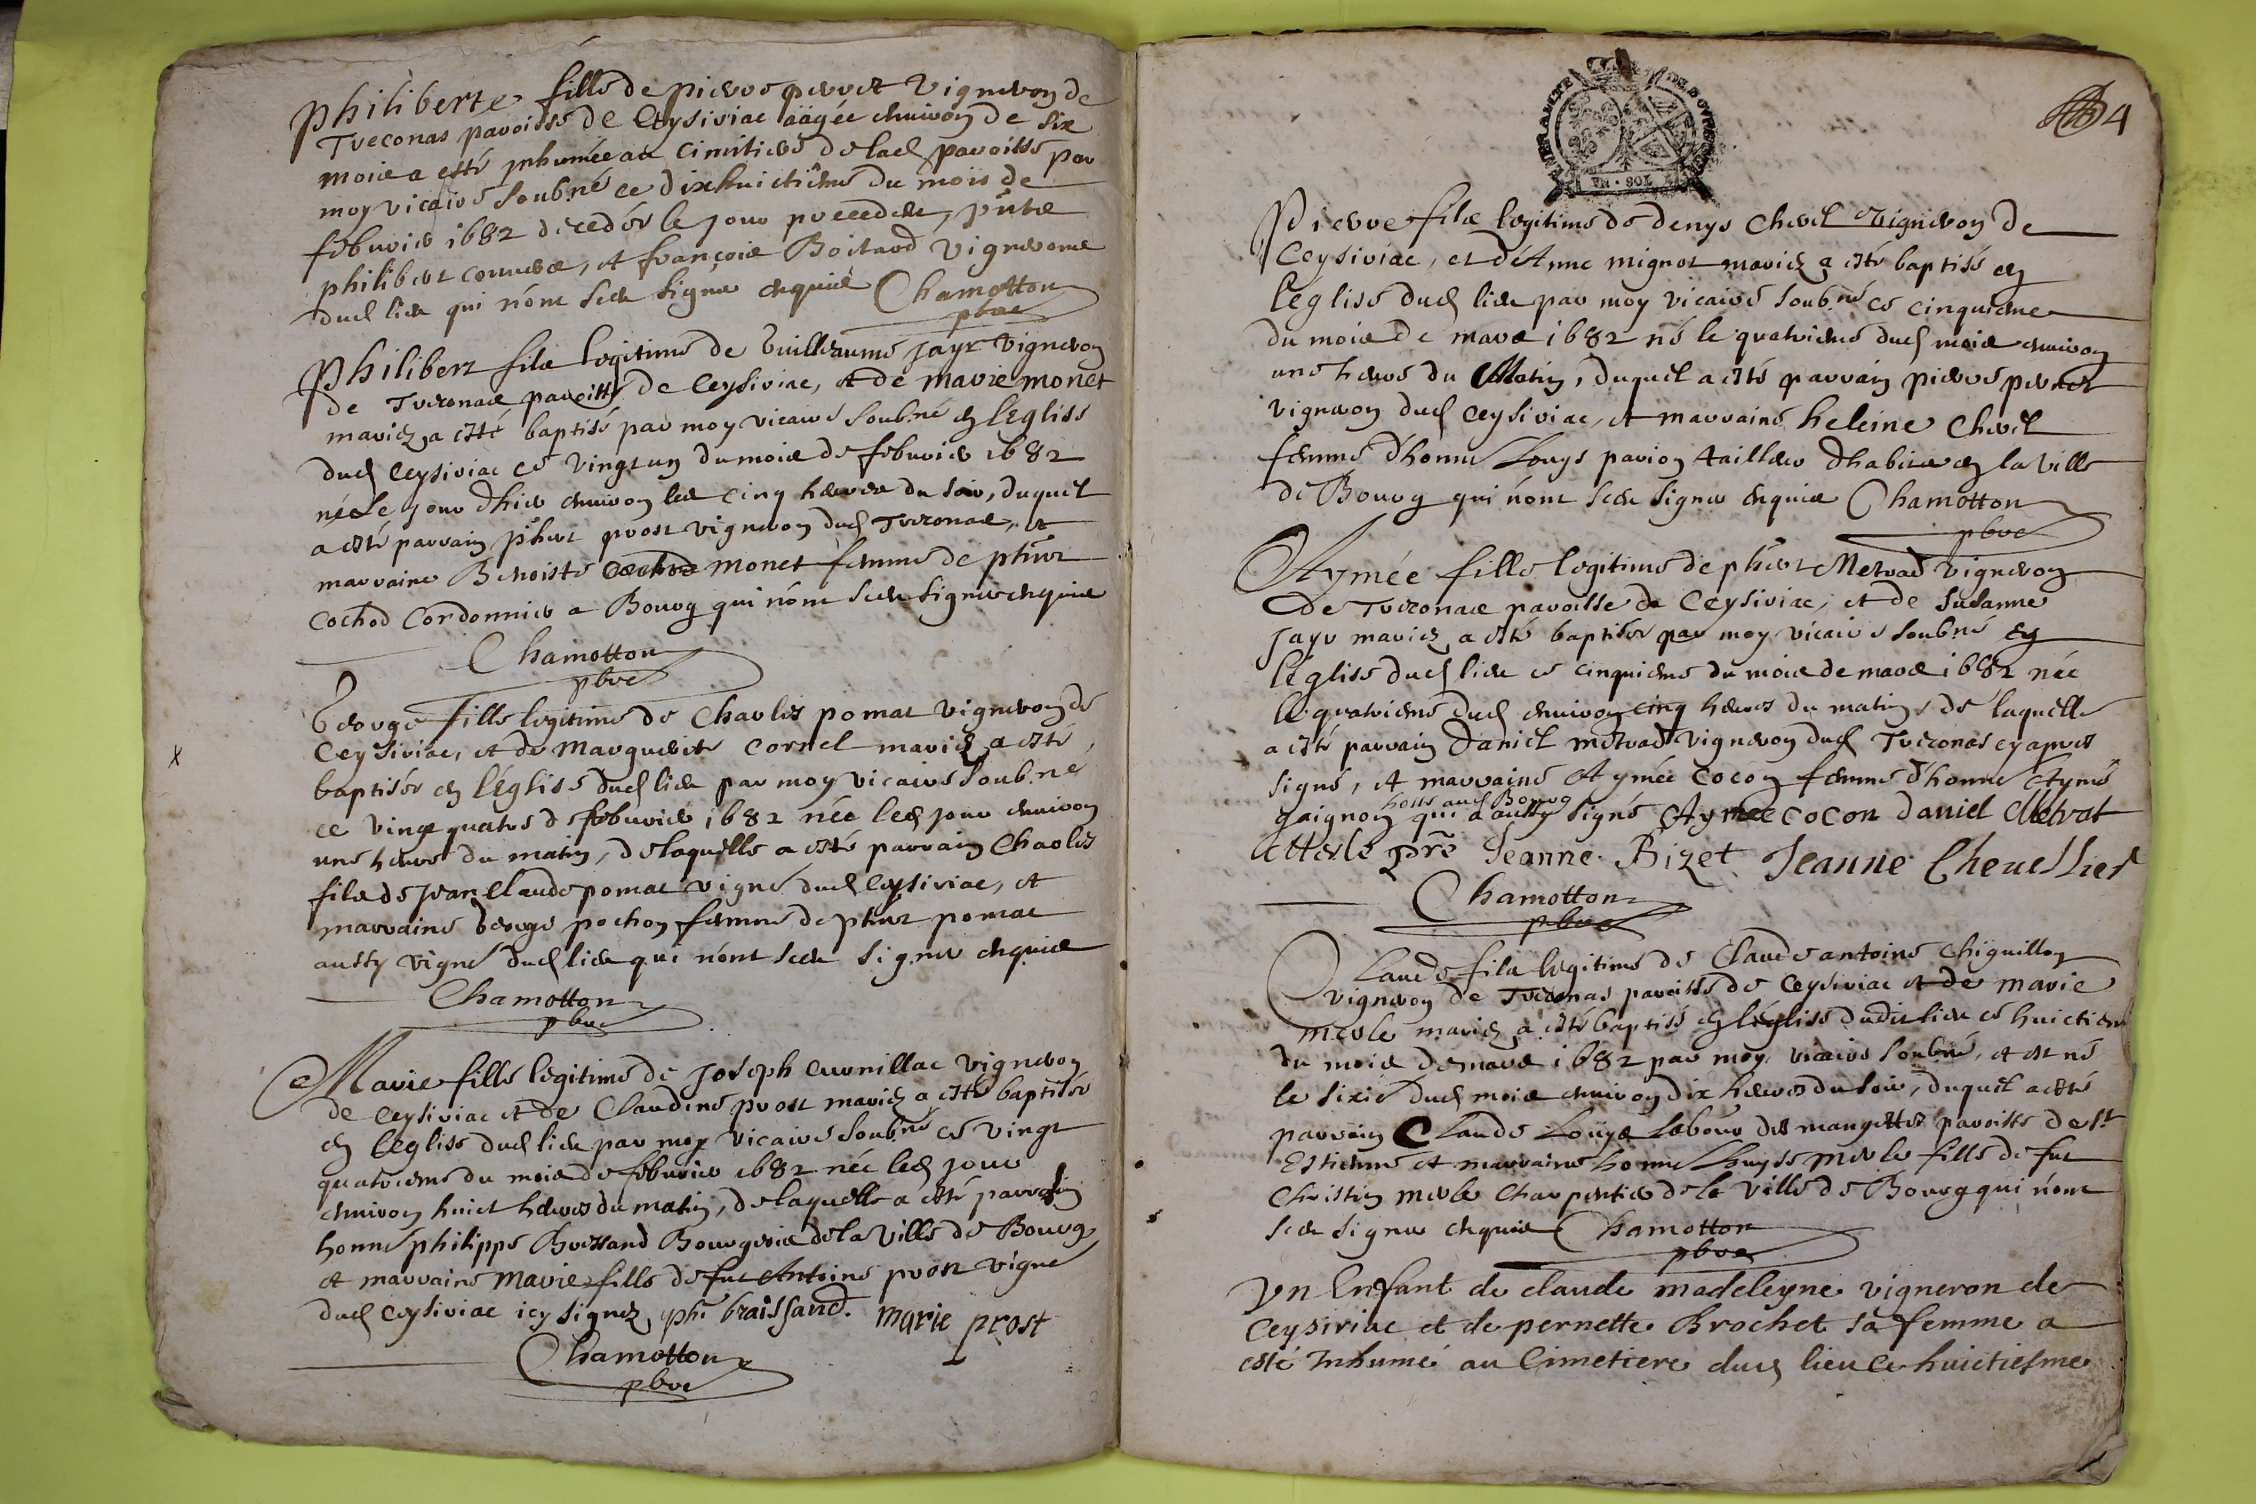 Philiberte fille de pierre perret vigneron de
Treconas paroisse de Ceysiriac aagée environ de six
mois a esté inhumée au cimitiere de lad paroisse par
moy vicaire soubné ce dixhuictième du mois de
febvrier 1682 decedée le jour precedent, pnts
philibert et françois Boitard vignerons
dud lieu qui n'ont sceu signer enquis Chamotton
pbre
Philibert fils legitime de Guilleaume Jayr vigneron
de Treconas paroisse de Ceysiriac, et de marie monet
mariez a esté baptisé par moy vicaire soubné en leglise
dud Ceysiriac ce vingt un du mois de febvrier 1682
né le jour d'hier environ les cinq heures du soir, duquel
a esté parrain phert prost vigneron dud Treconas, et
marraine Benoiste monet femme de phert
Cochod Cordonnier a Bourg qui n'ont sceu signer enquis
Chamotton
pbre
George fille legitime de Charles pomat vigneron de
Ceysiriac, et de marguerite cornel mariez a esté
baptisée en l'église dud lieu par moy vicaire soubné
ce vingt quatre de febvrier 1682 née led jour environ
une heure du matin, de laquelle a esté parrain Charles
fils de Jean Claude pomat vigne dud Ceysiriac, et
marraine George pochon femme de phert pomat
aussy vigne dud lieu qui n'ont sceu signer enquis
Chamotton
pbre
Marie fille legitime de Joseph vigneron
de Ceysiriac et de Claudine prost mariez a esté baptisée
en leglise dud lieu par moy vicaire soubné ce vingt
quatrieme du mois de febvrier 1682 née led jour
environ huict heures du matin, de laquelle a esté parrain
honne philippe Bressand Bourgeois de la ville de Bourg
et marraine marie fille de fut Antoine prost vigne
dud Ceysiriac icy signez phe braissand. marie prost
Chamotton
pbre
4
VN·SOL
Pierre fils legitime de denys Chevel vigneron de
Ceysiriac, et d'Anne mignot mariez a esté baptisé en
l'eglise dud lieu par moy vicaire soubné ce cinquieme
du mois de mars 1682 né le quatrieme dud mois environ
une heure du Matin, duquel a esté parrain pierre perret
vigneron dud Ceysiriac, et marraine heleine Chevel
femme d'honne Louys parion tailleur d'habits en la ville
de Bourg qui n'ont sceu signer enquis Chamotton
pbre
Aymée fille legitime de phert Metrad vigneron
de Treconas paroisse de Ceysiriac, et de Susanne
Jayr mariez a esté baptisée par moy vicaire soubné en
l'église dud lieu ce cinquieme du mois de mars 1682 née
le quatrieme dud environ cinq heures du matin, de laquelle
a esté parrain Daniel metrad vigneron dud Treconas cy apres
signé, et marraine Aymée Cocon femme d'honne Ayme
hoste aud Bourg
gaignon qui a aussy signé Aymée cocon daniel Metrat
Jeanne Bizet Jeanne Cheuellier
Chamotton
pbre
Claude fils legitime de Claude antoine Chiguillon
vigneron de Treconas paroisse de Ceysiriac et de marie
merle mariez a esté baptisé en l'église dudit lieu ce huictieme
du mois de mars 1682 par moy vicaire soubné, et est né
le sixie dud mois environ dix heures du soir, duquel a esté
parrain Claude Louys des mangettes paroisse de st
Estienne et marraine honne Louyse merle fille de fut
Christin merle Charpentier de la ville de Bourg qui n'ont
sceu signer enquis Chamotton
pbre
Vn Enfant de claude madeleyne vigneron de
Ceysiriac et de pernette Brochet sa femme a
esté Inhumé au Cimetiere dud lieu ce huictiesme